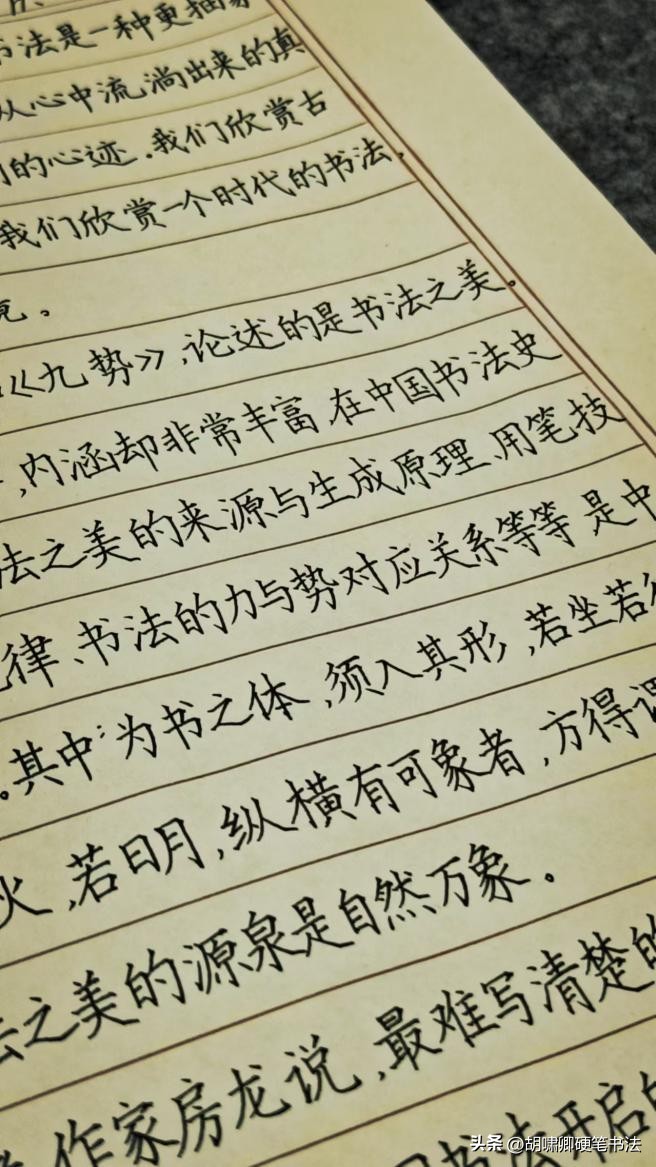 书法是一种更抽象
从心中流淌出来的真
们的心迹，我们欣赏古
我们欣赏一个时代的书法，
竟。
《九势》，论述的是书法之美。
，内涵却非常丰富，在中国书法史
法之美的来源与生成原理、用笔技
律、书法的力与势对应关系等等是中
。其中：为书之体，须入其形，若坐若行
火，若日月，纵横有可象者，方得谓
法之美的源泉是自然万象。
作家房龙说，最难写清楚的
书法开启的
头条 @胡啸卿硬笔书法